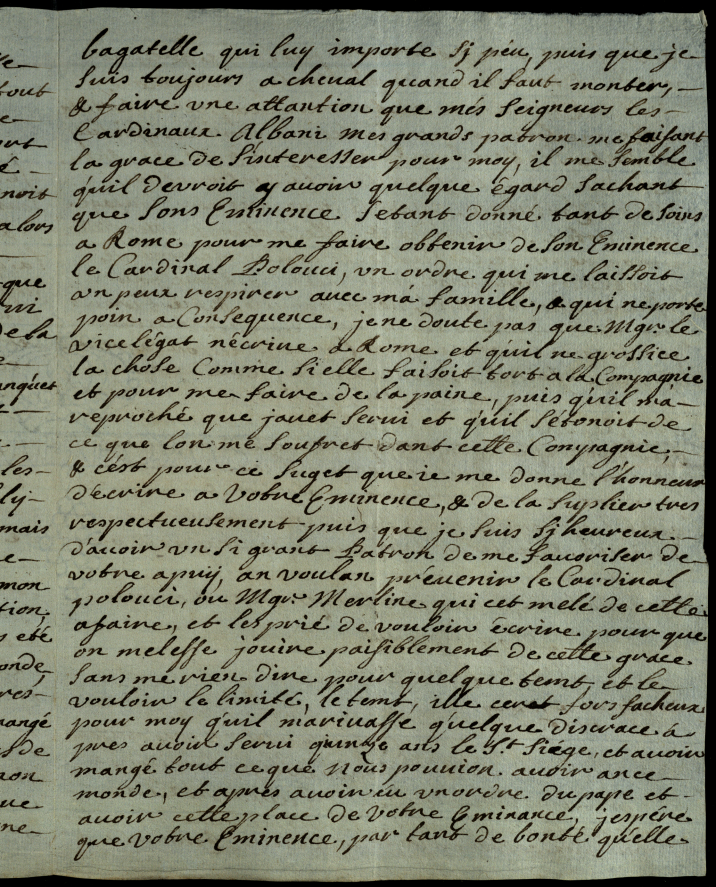 bagatelle qui luy importe sj péu, puis que je
suis toujours a cheval quand il faut monter,
& faire vne attantion que més seigneurs les
Cardinaux Albani mes grands patron me faisant
la grace de s'interesser pour moy, il me semble
quil devroit y avoir quelque égard sachant
que sons Eminence setant donné tant de soins
a Rome pour me faire obtenir de son Eminence
le Cardinal Polouci, vn ordre qui me laissoit
vn peux respirer avec má famille, & qui ne porte
poin a Consequence, je ne doute pas que Mgr. le
vicelégat nécrive a Rome et quil ne grossice
la chose Comme si elle faisoit tort a la Compagnie
et pour me faire de la paine, puis quil ma
reproché que javet servi et quil sétonoit de
ce que lon me soufret dant cette Compagnie,
& cést pour ce suget que ie me donne l'honneur
décrire a Votre Eminence, & de la suplier tres
respectueusement puis que je suis sj heureux
d'avoir vn si grant Patron de me favoriser de
votre apuy, an voulan prévenir le Cardinal
polouci, ou Mgr. Merline qui cet melé de cette
afaire, et les prié de vouloir écrire pour que
on me lesse jouire paisiblement de cette grace
sans me rien dire pour quelque temt, et le
vouloir le limité, le temt, ille ceret fors facheux
pour moy quil marivasse quelque discrace á
pres avoir servi quinze ans le St. Siége, et avoir
mangé tout ce que nous pouvion avoir ance
monde, et aprés avoir éu vn ordre du pape et
avoir cette place de Votre Eminance, j'espére
que Votre Eminence, par tant de bonté quelle